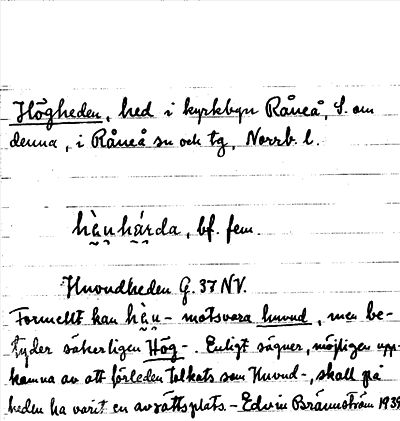 Högheden, hed i kyrkbyn Råneå, S. om
denna, i Råneå sn och tg, Norrb. l.
hàu̯hárda, bf. fem.
Huvudheden G. 37 NV.
Formellt kan hàu̯- motsvara huvud, men be-
tyder säkerligen Hög-. Enligt sägner, möjligen upp-
komna av att förleden tolkats som Huvud-, skall på
heden ha varit en avrättsplats. - Edvin Brännström 1939